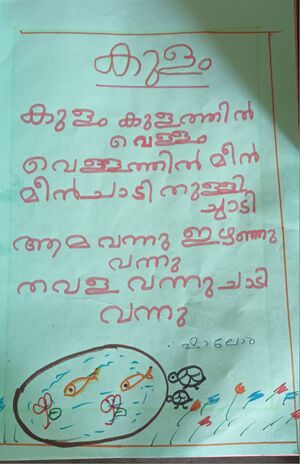 കുളം
കുളം കുളത്തിൽ
വെള്ളം
വെള്ളത്തിൽ മീൻ
മീൻചാടി തുള്ളി
ച്ചാടി
ആമ വന്നു ഇഴഞ്ഞു
വന്നു
തവള വന്നു ചാടി
വന്നു